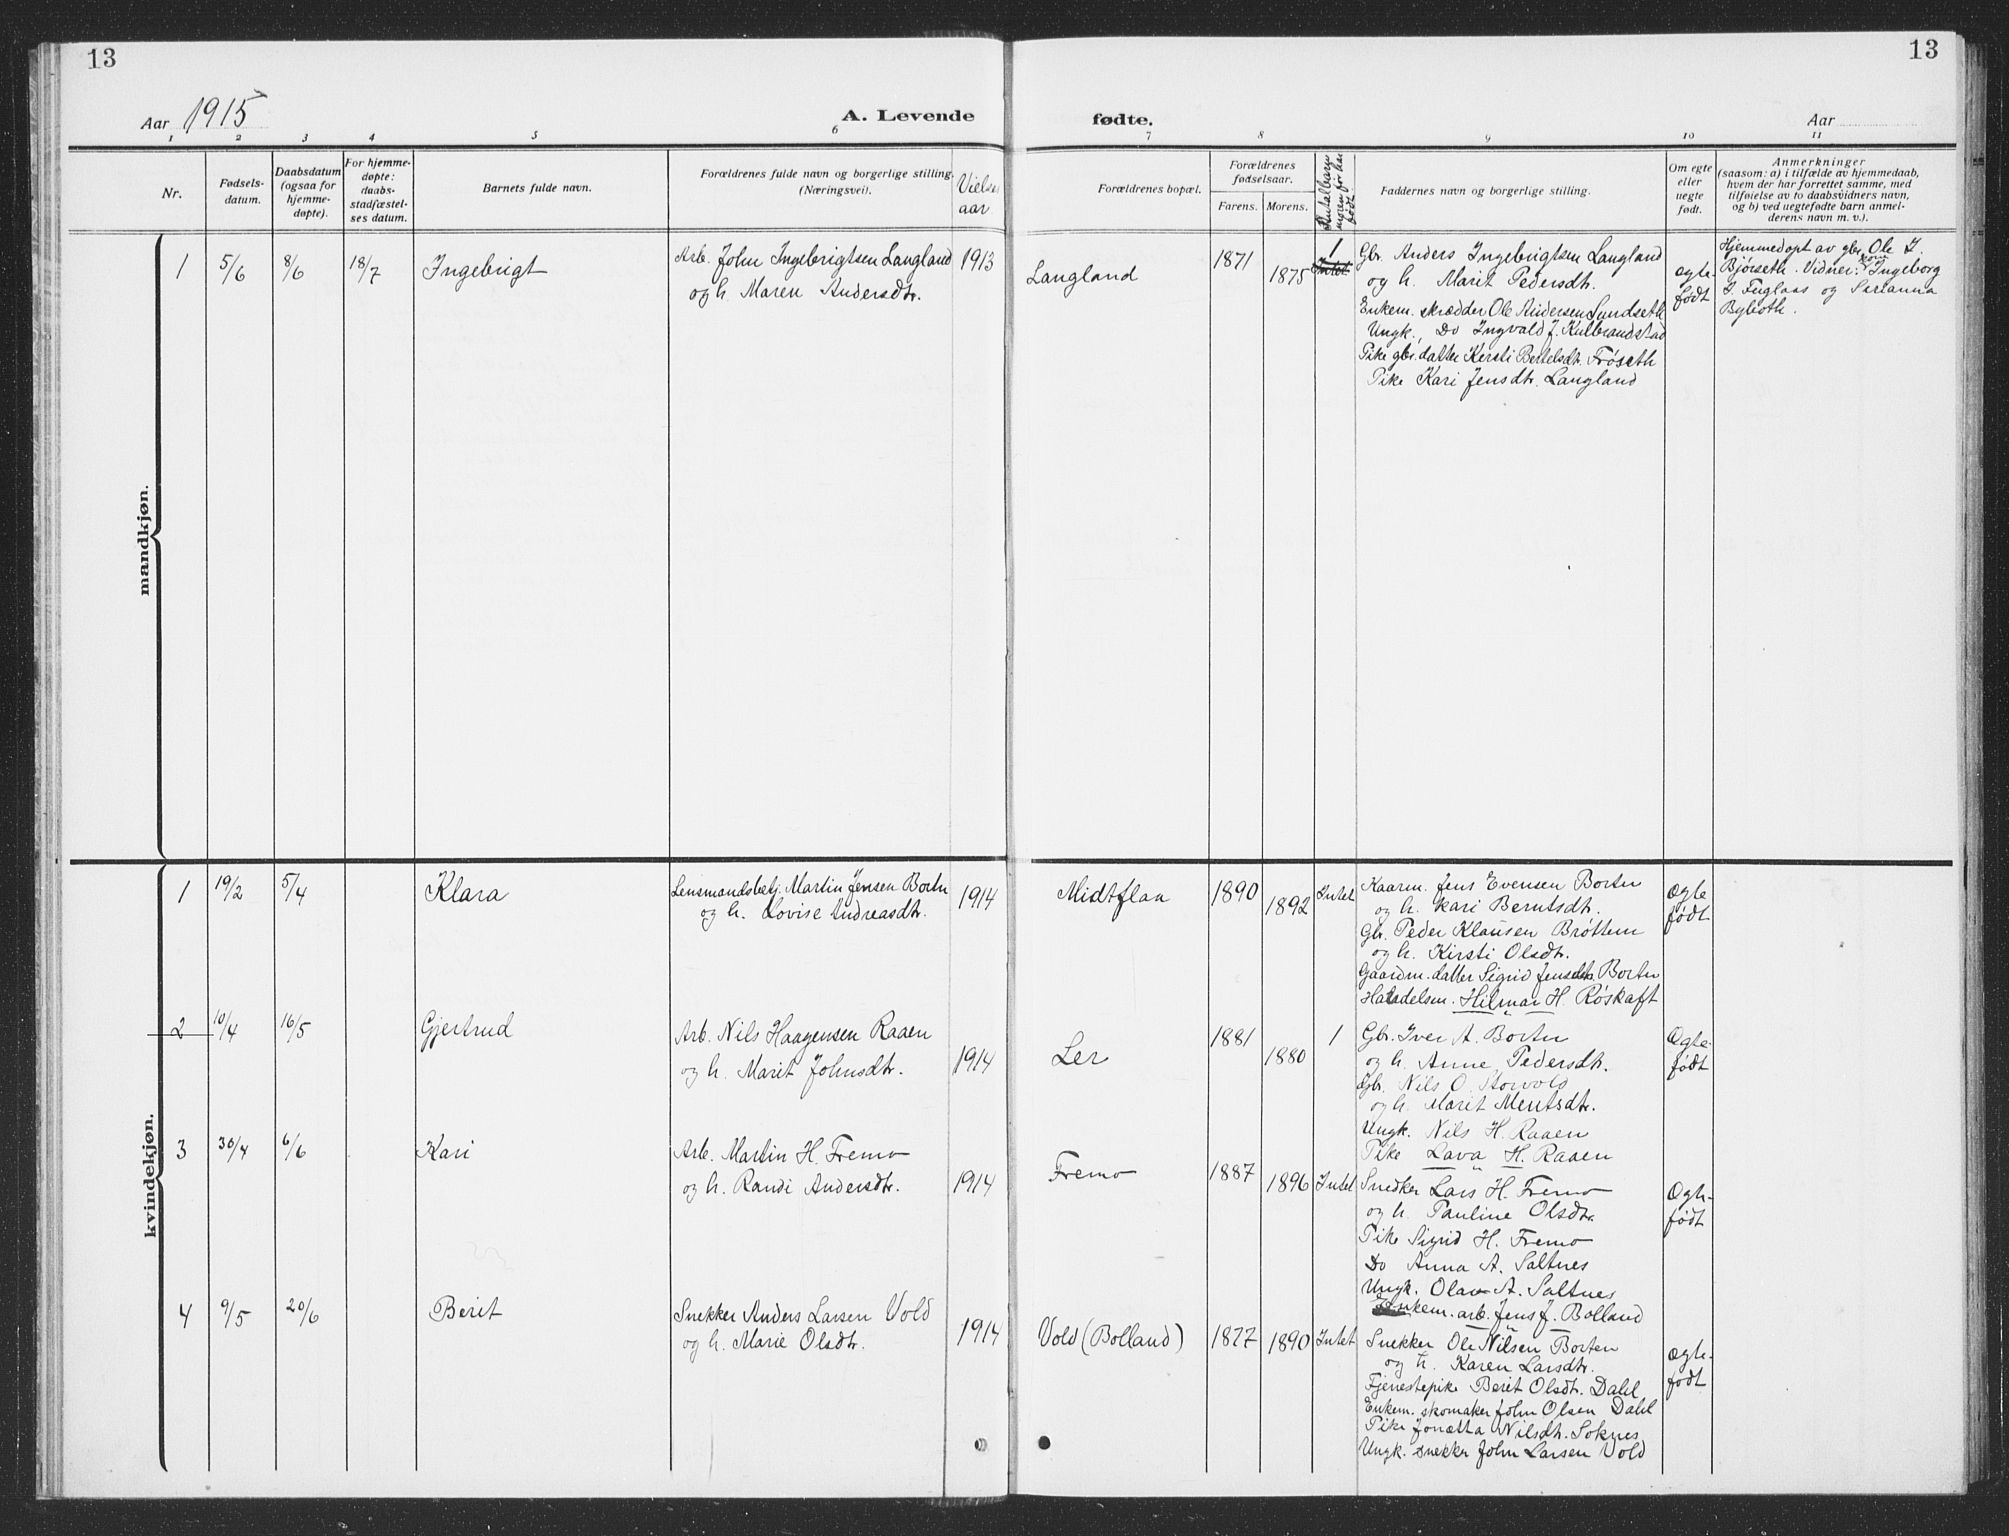 13
13
Aar 1915
A. Levende
fødte.
Aar
1 2 3 4 5 6 7 8 9 10 11
Nr.
Fødsels-
datum.
Daabsdatum
(ogsaa for
hjemme-
døpte).
For hjemme-
døpte:
daabs-
stadfæstel-
ses datum.
Barnets fulde navn.
Forældrenes fulde navn og borgerlige stilling.
(Næringsvei).
Vielses
aar
Forældrenes bopæl.
Forældrenes
fødselsaar.
Farens. Morens.
Antal barn
moren før har
født
Faddernes navn og borgerlige stilling.
Om egte
eller
uegte
født.
Anmerkninger
(saasom: a) i tilfælde av hjemmedaab,
hvem der har forrettet samme, med
tilføielse av to daabsvidners navn,
og b) ved uegtefødte barn anmel-
derens navn m. v.).
mandkjøn.
1 5/6 8/6 18/7 Ingebrigt
Arb. John Ingebrigtsen Langland 1913
og h. Maren Andersdtr.
Langland 1871 1875 1
Intet
Gbr. Anders Ingebrigtsen Langland
og h. Marit Pedersdtr.
Enkem. skrædder Ole Andersen Sundseth
Ungk., Do Ingvald J. Kulbrandstad
Pike gbr. datter Kersti Bertelsdtr. Frøseth
Pike Kari Jensdtr. Langland
egte-
født
Hjemmedøpt av gbr. Ole I.
Bjørseth. Vidner: kone Ingeborg
I. Fuglaas og Sarianna
Byboth.
kvindekjøn.
1 19/2 5/4 Klara
Lensmandsbetj. Martin Jensen Borten
og h. Lovise Andreasdtr. 1914
Midtflaa 1890 1892 Intet
Kaarm. Jens Evensen Borten
og h. Kari Berntsdtr.
Gbr. Peder Klausen Brøttem
og h. Kirsti Olsdtr.
Gaardm. datter Sigrid Jensdtr. Borten
Handelsm. Hilmar H. Røskaft
Egte
født
2 10/4 16/5 Gjertrud
Arb. Nils Haagensen Raaen
og h. Marit Johnsdtr. 1914
Ler 1881 1880 1
Gbr. Iver A. Borten
og h. Anne Pedersdtr.
Gbr. Nils O. Storvold
og h. Marit Mentsdtr.
Ungk. Nils H. Raaen
Pike Lava H. Raaen
Egte-
født
3 30/4 6/6 Kari
Arb. Martin H. Fremo
og h. Randi Andersdtr. 1914
Fremo 1887 1896 Intet
Snedker Lars H. Fremo
og h. Pauline Olsdtr.
Pike Sigrid H. Fremo
Do Anna A. Saltnes
Ungk. Olav A. Saltnes
Enkem. arb. Jens J. Bolland
Egte-
født
4 9/5 20/6 Berit
Snekker Anders Larsen Vold
og h. Marie Olsdtr. 1914
Vold (Bolland) 1877 1890 Intet
Snekker Ole Nilsen Borten
og h. Karen Larsdtr.
Tjenestepike Berit Olsdtr. Dahl
Enkem. skomaker John Olsen Dahl
Pike Jonetta Nilsdtr. Soknes
Ungk. snekker John Larsen Vold
egte-
født